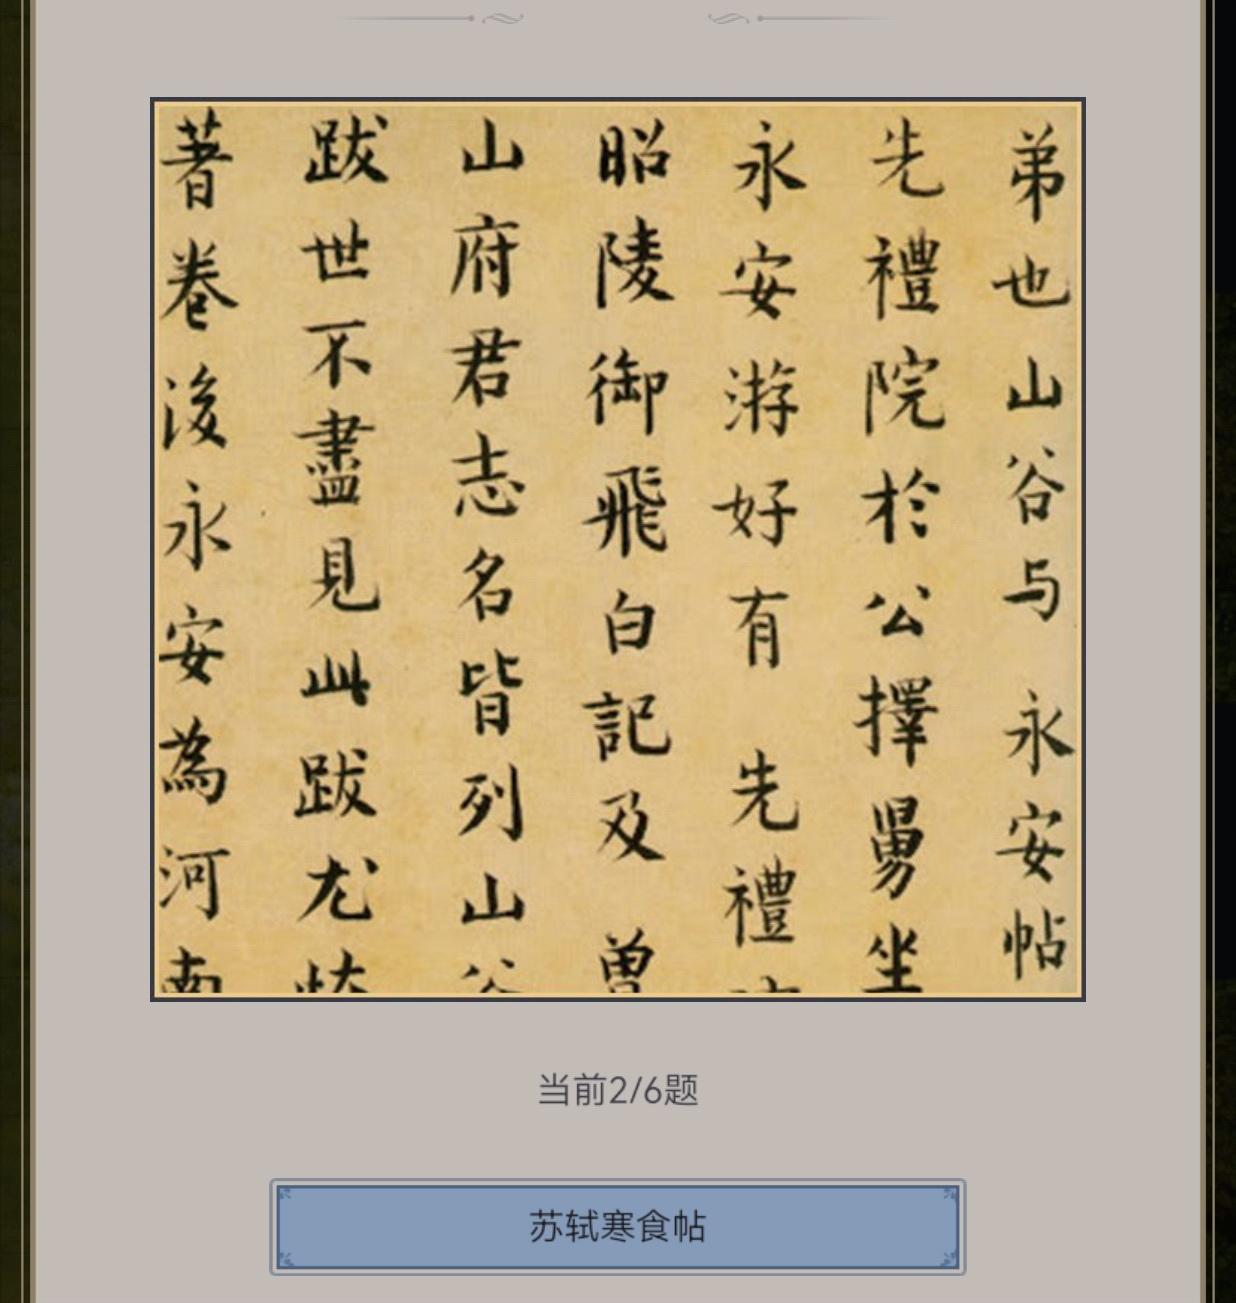 弟也山谷与 永安帖
先禮院於公擇舅坐
永安游好有 先禮
昭陵御飛白記及 曽
山府君志名皆列山谷
跋世不盡見此跋尤恢
著卷後永安為河南
当前2/6题
苏轼寒食帖